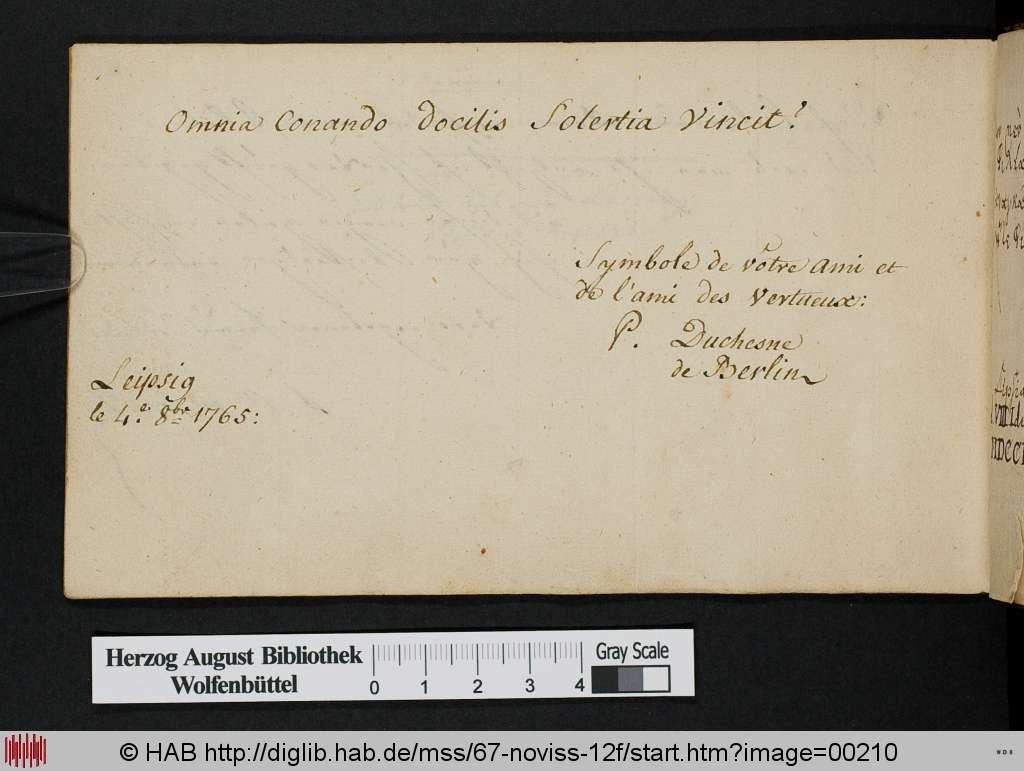 Omnia Conando docilis Solertia Vincit!
Symbole de vôtre ami et
de l'ami des vertueux:
P. Duchesne
de Berlin
Leipsig
le 4.e 8br 1765:
Herzog August Bibliothek
Wolfenbüttel
0 1 2 3 4
Gray Scale
© HAB http://diglib.hab.de/mss/67-noviss-12f/start.htm?image=00210
WDB